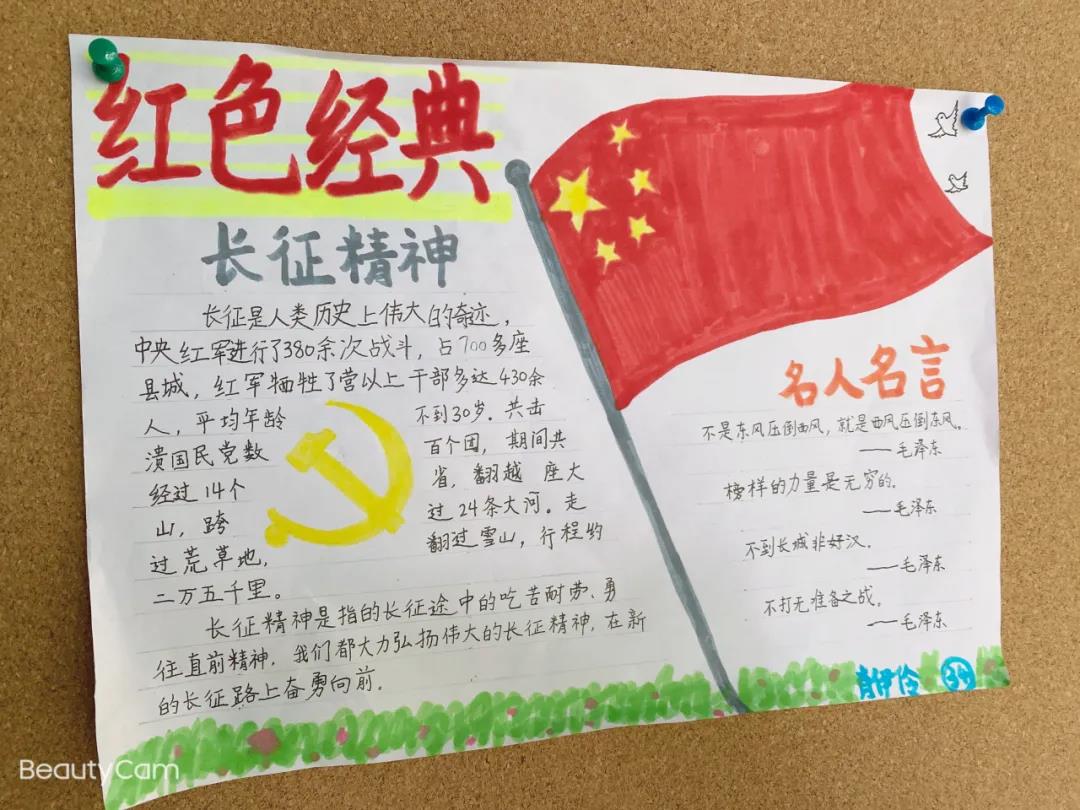 红色经典
长征精神
长征是人类历史上伟大的奇迹，
中央红军进行了380余次战斗，占700多座
县城，红军牺牲了营以上干部多达430余
人，平均年龄 不到30岁。共击
溃国民党数 百个团，期间共
经过14个 省，翻越 座大
山，跨 过24条大河。走
过荒草地， 翻过雪山，行程约
二万五千里。
长征精神是指的长征途中的吃苦耐劳、勇
往直前精神，我们都大力弘扬伟大的长征精神，在新
的长征路上奋勇向前。
名人名言
不是东风压倒西风，就是西风压倒东风。
——毛泽东
榜样的力量是无穷的。
——毛泽东
不到长城非好汉。
——毛泽东
不打无准备之战。
——毛泽东
肖伊伶 39
BeautyCam